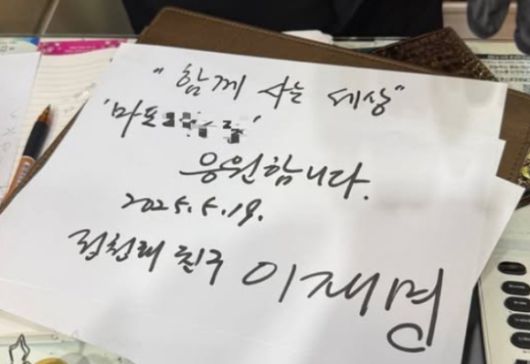 "함께 사는 세상"
'마포
응원합니다.
2025.5.19.
정청래 친구 이재명